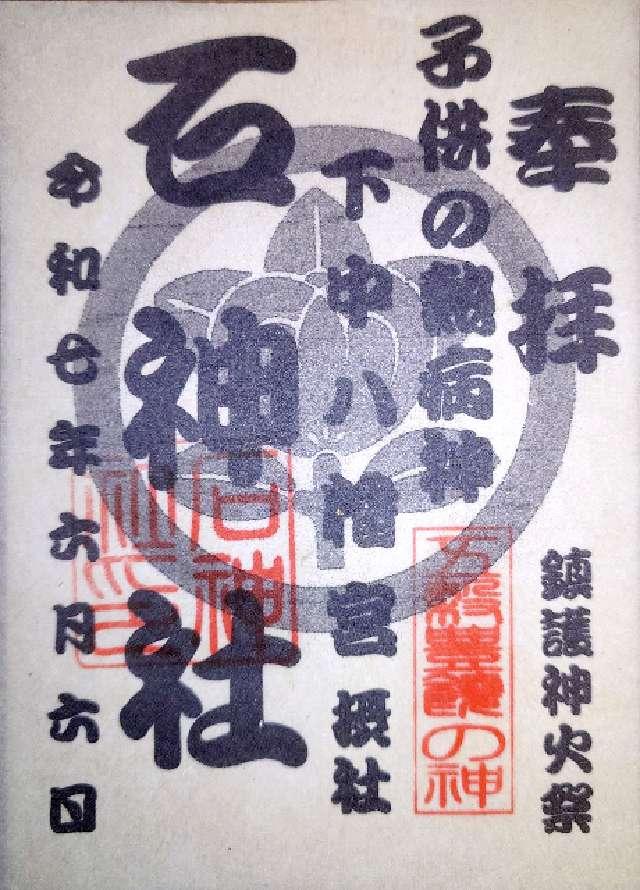 奉拝
鎮護神火祭
子供の熱病神
下中八幡宮摂社
石神社
石神
社之印
令和七年六月六日
の神